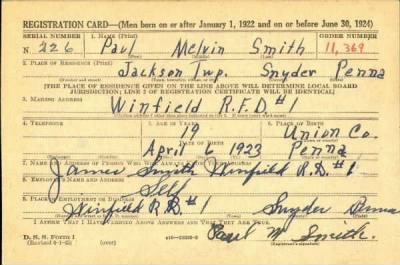 REGISTRATION CARD—(Men born on or after January 1, 1922 and on or before June 30, 1924)
SERIAL NUMBER 1. NAME (Print) ORDER NUMBER
N 226 Paul Melvin Smith 11,369
2. PLACE OF RESIDENCE (Print)
Jackson Twp. Snyder Penna
[THE PLACE OF RESIDENCE GIVEN ON THE LINE ABOVE WILL DETERMINE LOCAL BOARD
JURISDICTION; LINE 2 OF REGISTRATION CERTIFICATE WILL BE IDENTICAL]
3. MAILING ADDRESS
Winfield R.F.D #1
4. TELEPHONE 5. AGE IN YEARS 6. PLACE OF BIRTH
19 Union Co.
DATE OF BIRTH
April 6 1923 Penna
7. NAME AND ADDRESS OF PERSON WHO WILL ALWAYS KNOW YOUR ADDRESS
James Smith Winfield R.D. #1
8. EMPLOYER'S NAME AND ADDRESS
Self
9. PLACE OF EMPLOYMENT OR BUSINESS
Winfield R.D. #1 Snyder Penna
I AFFIRM THAT I HAVE VERIFIED ABOVE ANSWERS AND THAT THEY ARE TRUE.
D. S. S. Form 1 Paul M Smith.
(over)